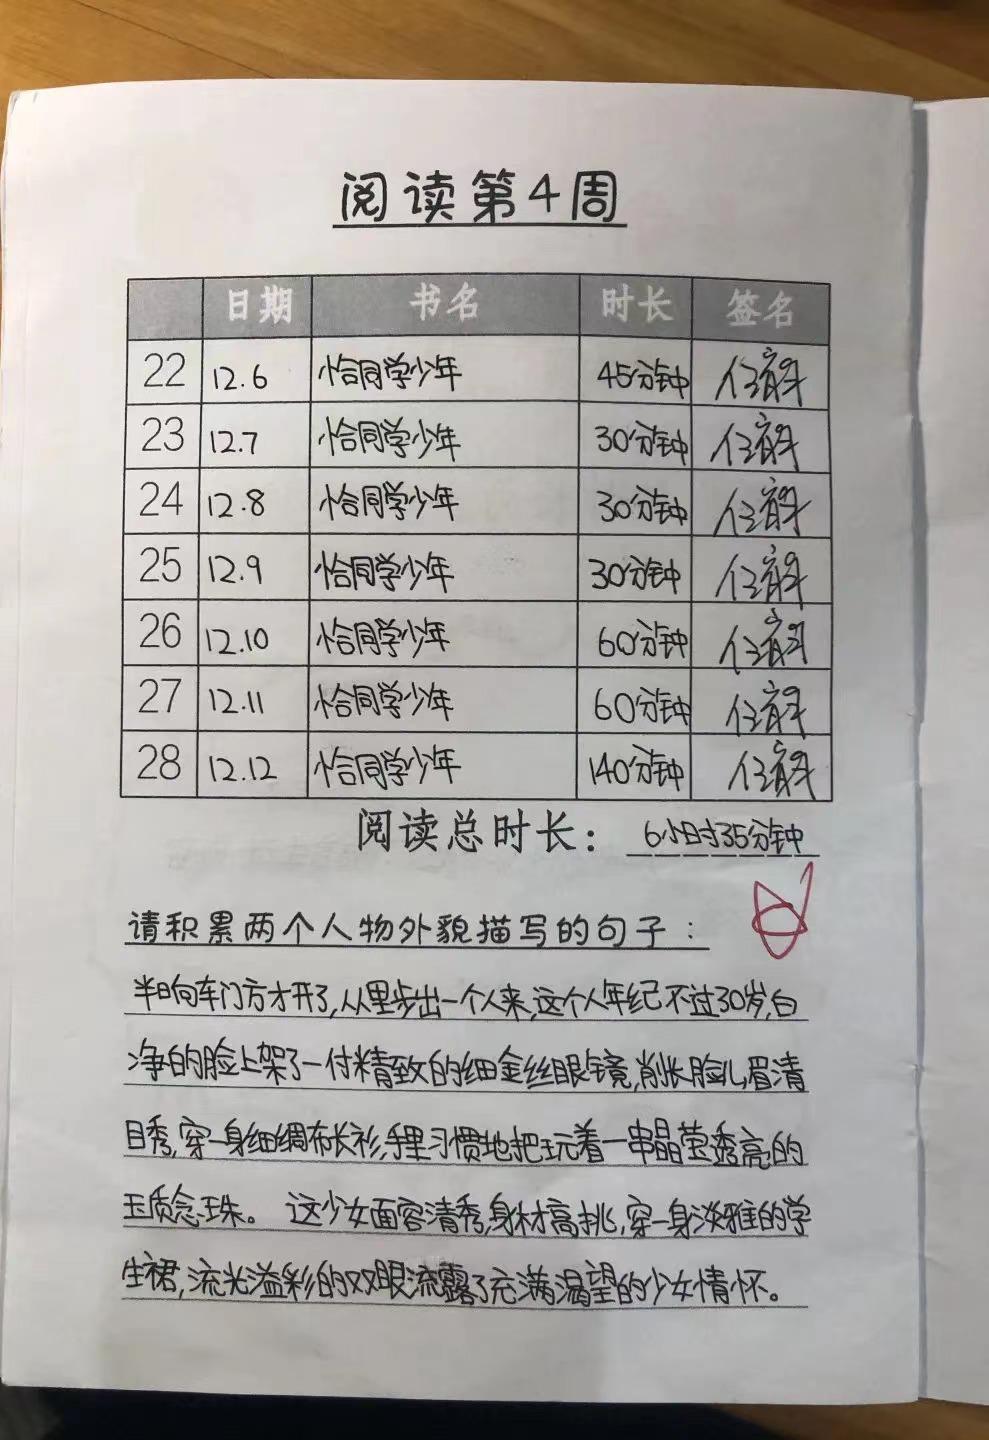 阅读第4周
日期 书名 时长 签名
22 12.6 恰同学少年 45分钟
23 12.7 恰同学少年 30分钟
24 12.8 恰同学少年 30分钟
25 12.9 恰同学少年 30分钟
26 12.10 恰同学少年 60分钟
27 12.11 恰同学少年 60分钟
28 12.12 恰同学少年 140分钟
阅读总时长：6小时35分钟
请积累两个人物外貌描写的句子：
半晌车门方才开了,从里步出一个人来,这个人年纪不过30岁,白
净的脸上架了一付精致的细金丝眼镜,削长脸儿,眉清
目秀,穿一身细绸布长衫,手里习惯地把玩着一串晶莹透亮的
玉质念珠。 这少女面容清秀,身材高挑,穿一身淡雅的学
生裙,流光溢彩的双眼流露了充满渴望的少女情怀。